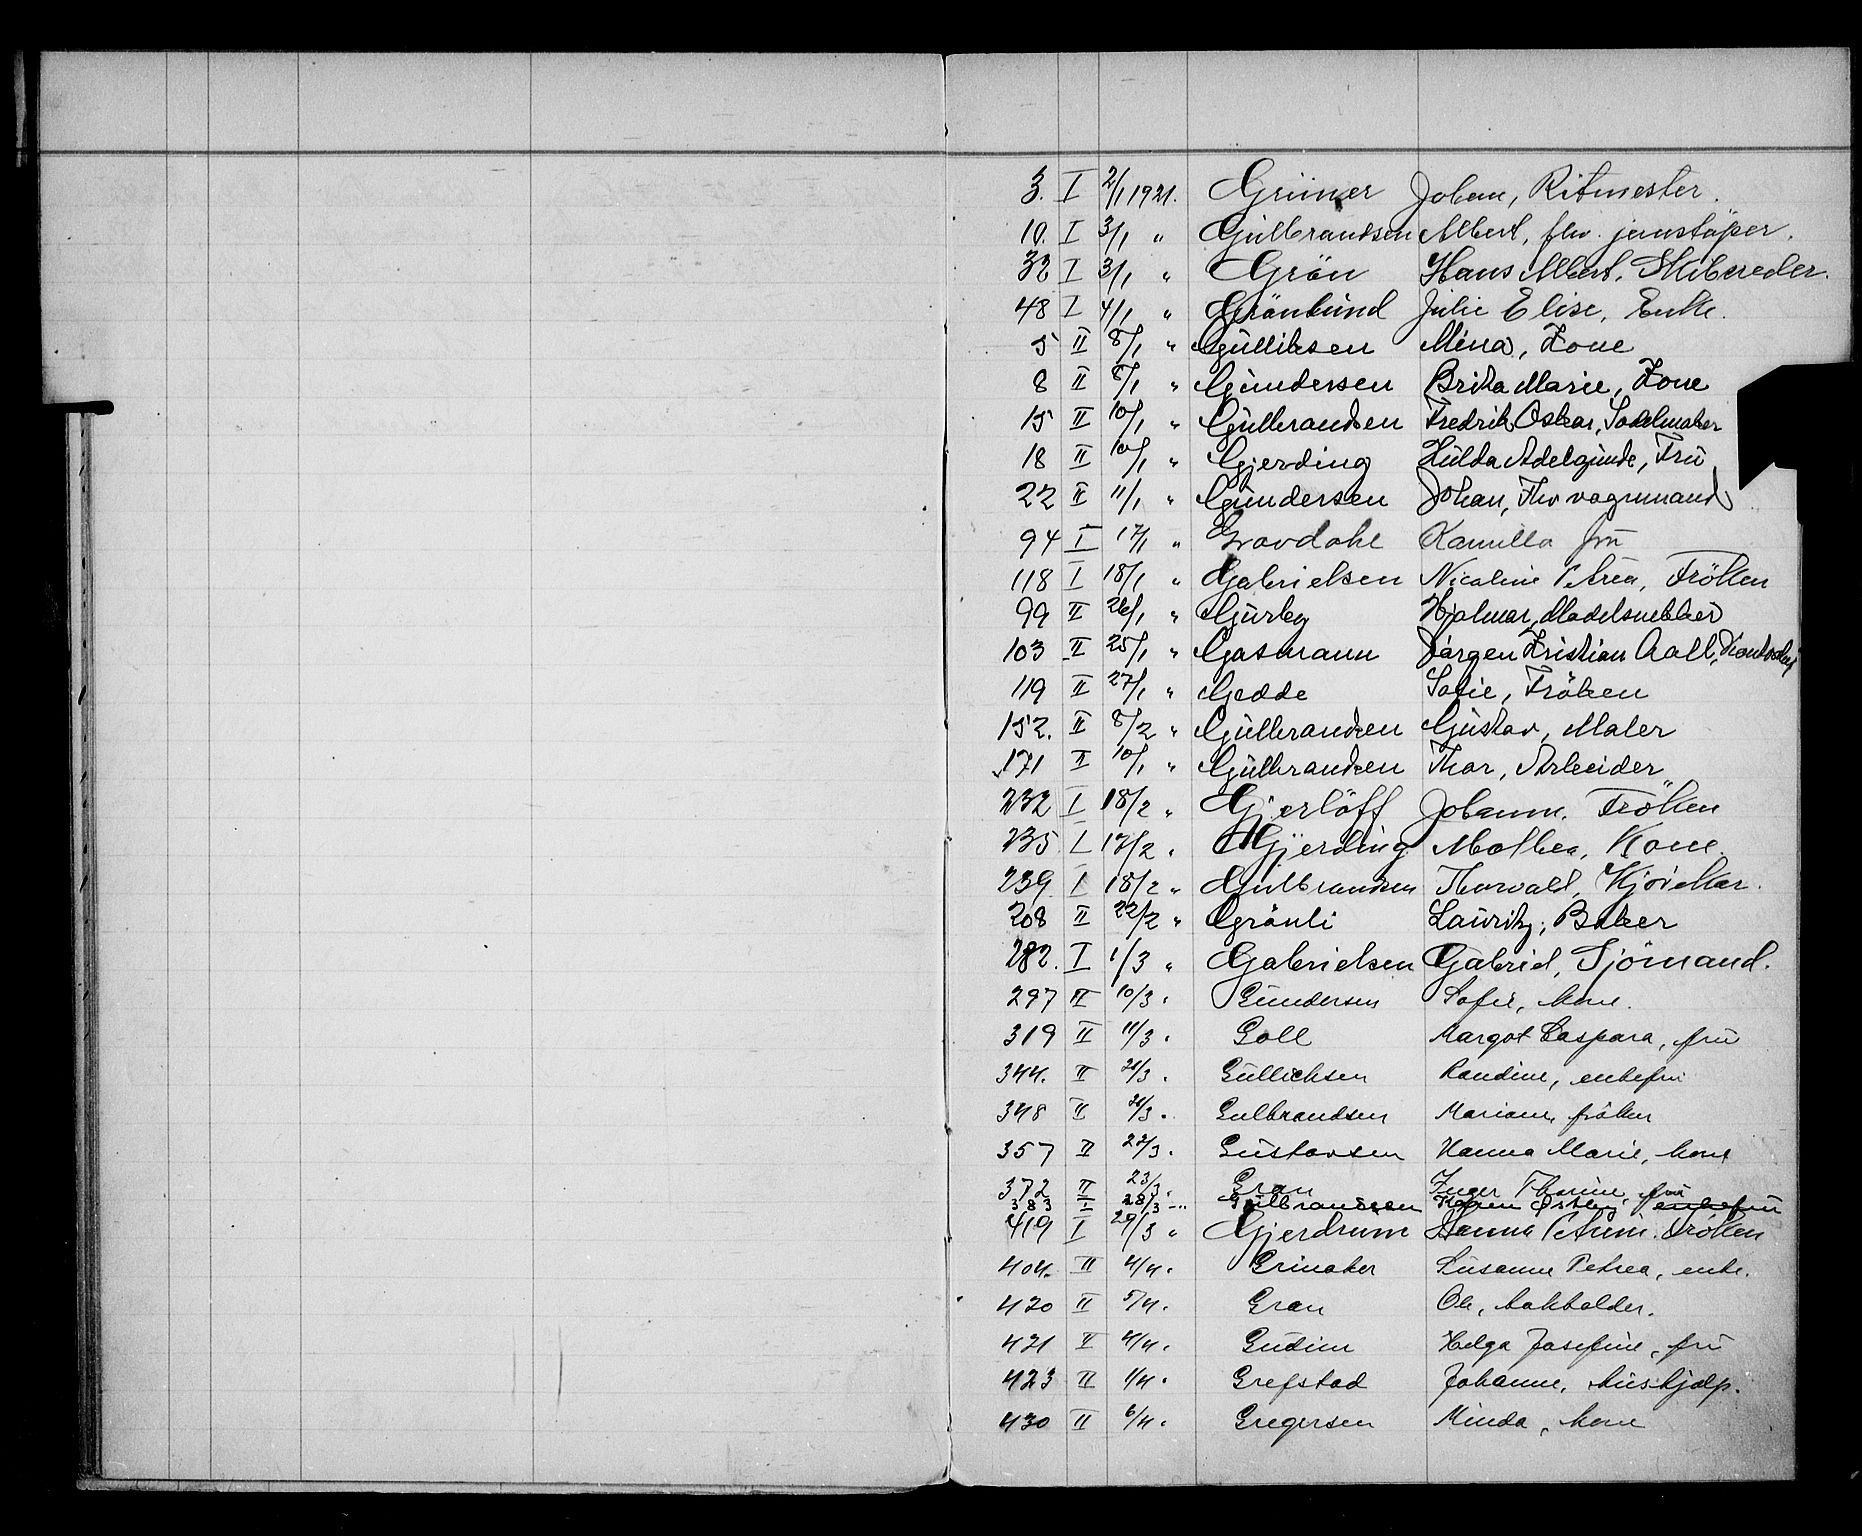 3. I 2/1 1921. Grüner Johan, Ritmester.
10. I 3/1 " Gulbrandsen Albert, fhv. jernstöper.
32 I 3/1 " Grön Hans Albert, Skibsreder.
48 I 4/1 " Grönlund Julie Elise, Enke.
5 II 8/1 " Gulliksen Mina, Kone
8 II 8/1 " Gundersen Brita Marie, Kone
15 II 10/1 " Gulbrandsen Fredrik Oskar, Sadelmaker
18 II 10/1 " Gjerding Hulda Adelgunde, Fru
22 II 11/1 " Gundersen Johan, Fhv vognmand
94 I 17/1 " Gravdahl Kamilla fru
118 I 18/1 " Gabrielsen Nicoline Petrea, Fröken
99 II 26/1 " Gurby Hjalmar, Modelsnekker
103 II 25/1 " Gasmann Jørgen Kristian Aall,
119 II 27/1 " Gedde Sofie, Fröken
152. II 8/2 " Gulbrandsen Gustav, Maler
171 II 10/1 " Gulbrandsen Thor, Arbeider
232 I 18/2 " Gjerlöff Johanne. Fröken
235 I 17/2 " Gjerding Mathea, Kone.
239 I 18/2 " Gulbrandsen Thorvald,
208 II 22/2 " Grönli Lauritz, Baker
282. I 1/3 " Gabrielsen Gabriel, Sjömand.
297 II 10/3 " Gundersen Sofie, kone.
319 II 11/3 " Goll Margot Caspara, fru
344. II 20/3 " Gullichsen Randine, enkefru
348 II 20/3 " Gulbrandsen Mariane, fröken
357 II 22/3 " Gustavsen Hanna Marie, kone
372 II 23/3 " Gran Inger Thorine, fru
383 I 28/3 -"- Gulbrandsen Karen Østby, enkefru
419 I 29/3 " Gjerdrum Hanna Petrine. Fröken
404. II 4/4 " Grinaker Susanne Petrea, enke.
420 II 5/4 " Gran Ole, bokholder.
421 II 4/4 " Gudim Helga Josefine, fru
423 II 1/4 " Grefstad Johanne, hushjælp.
430 II 6/4 " Gregersen Minda, kone